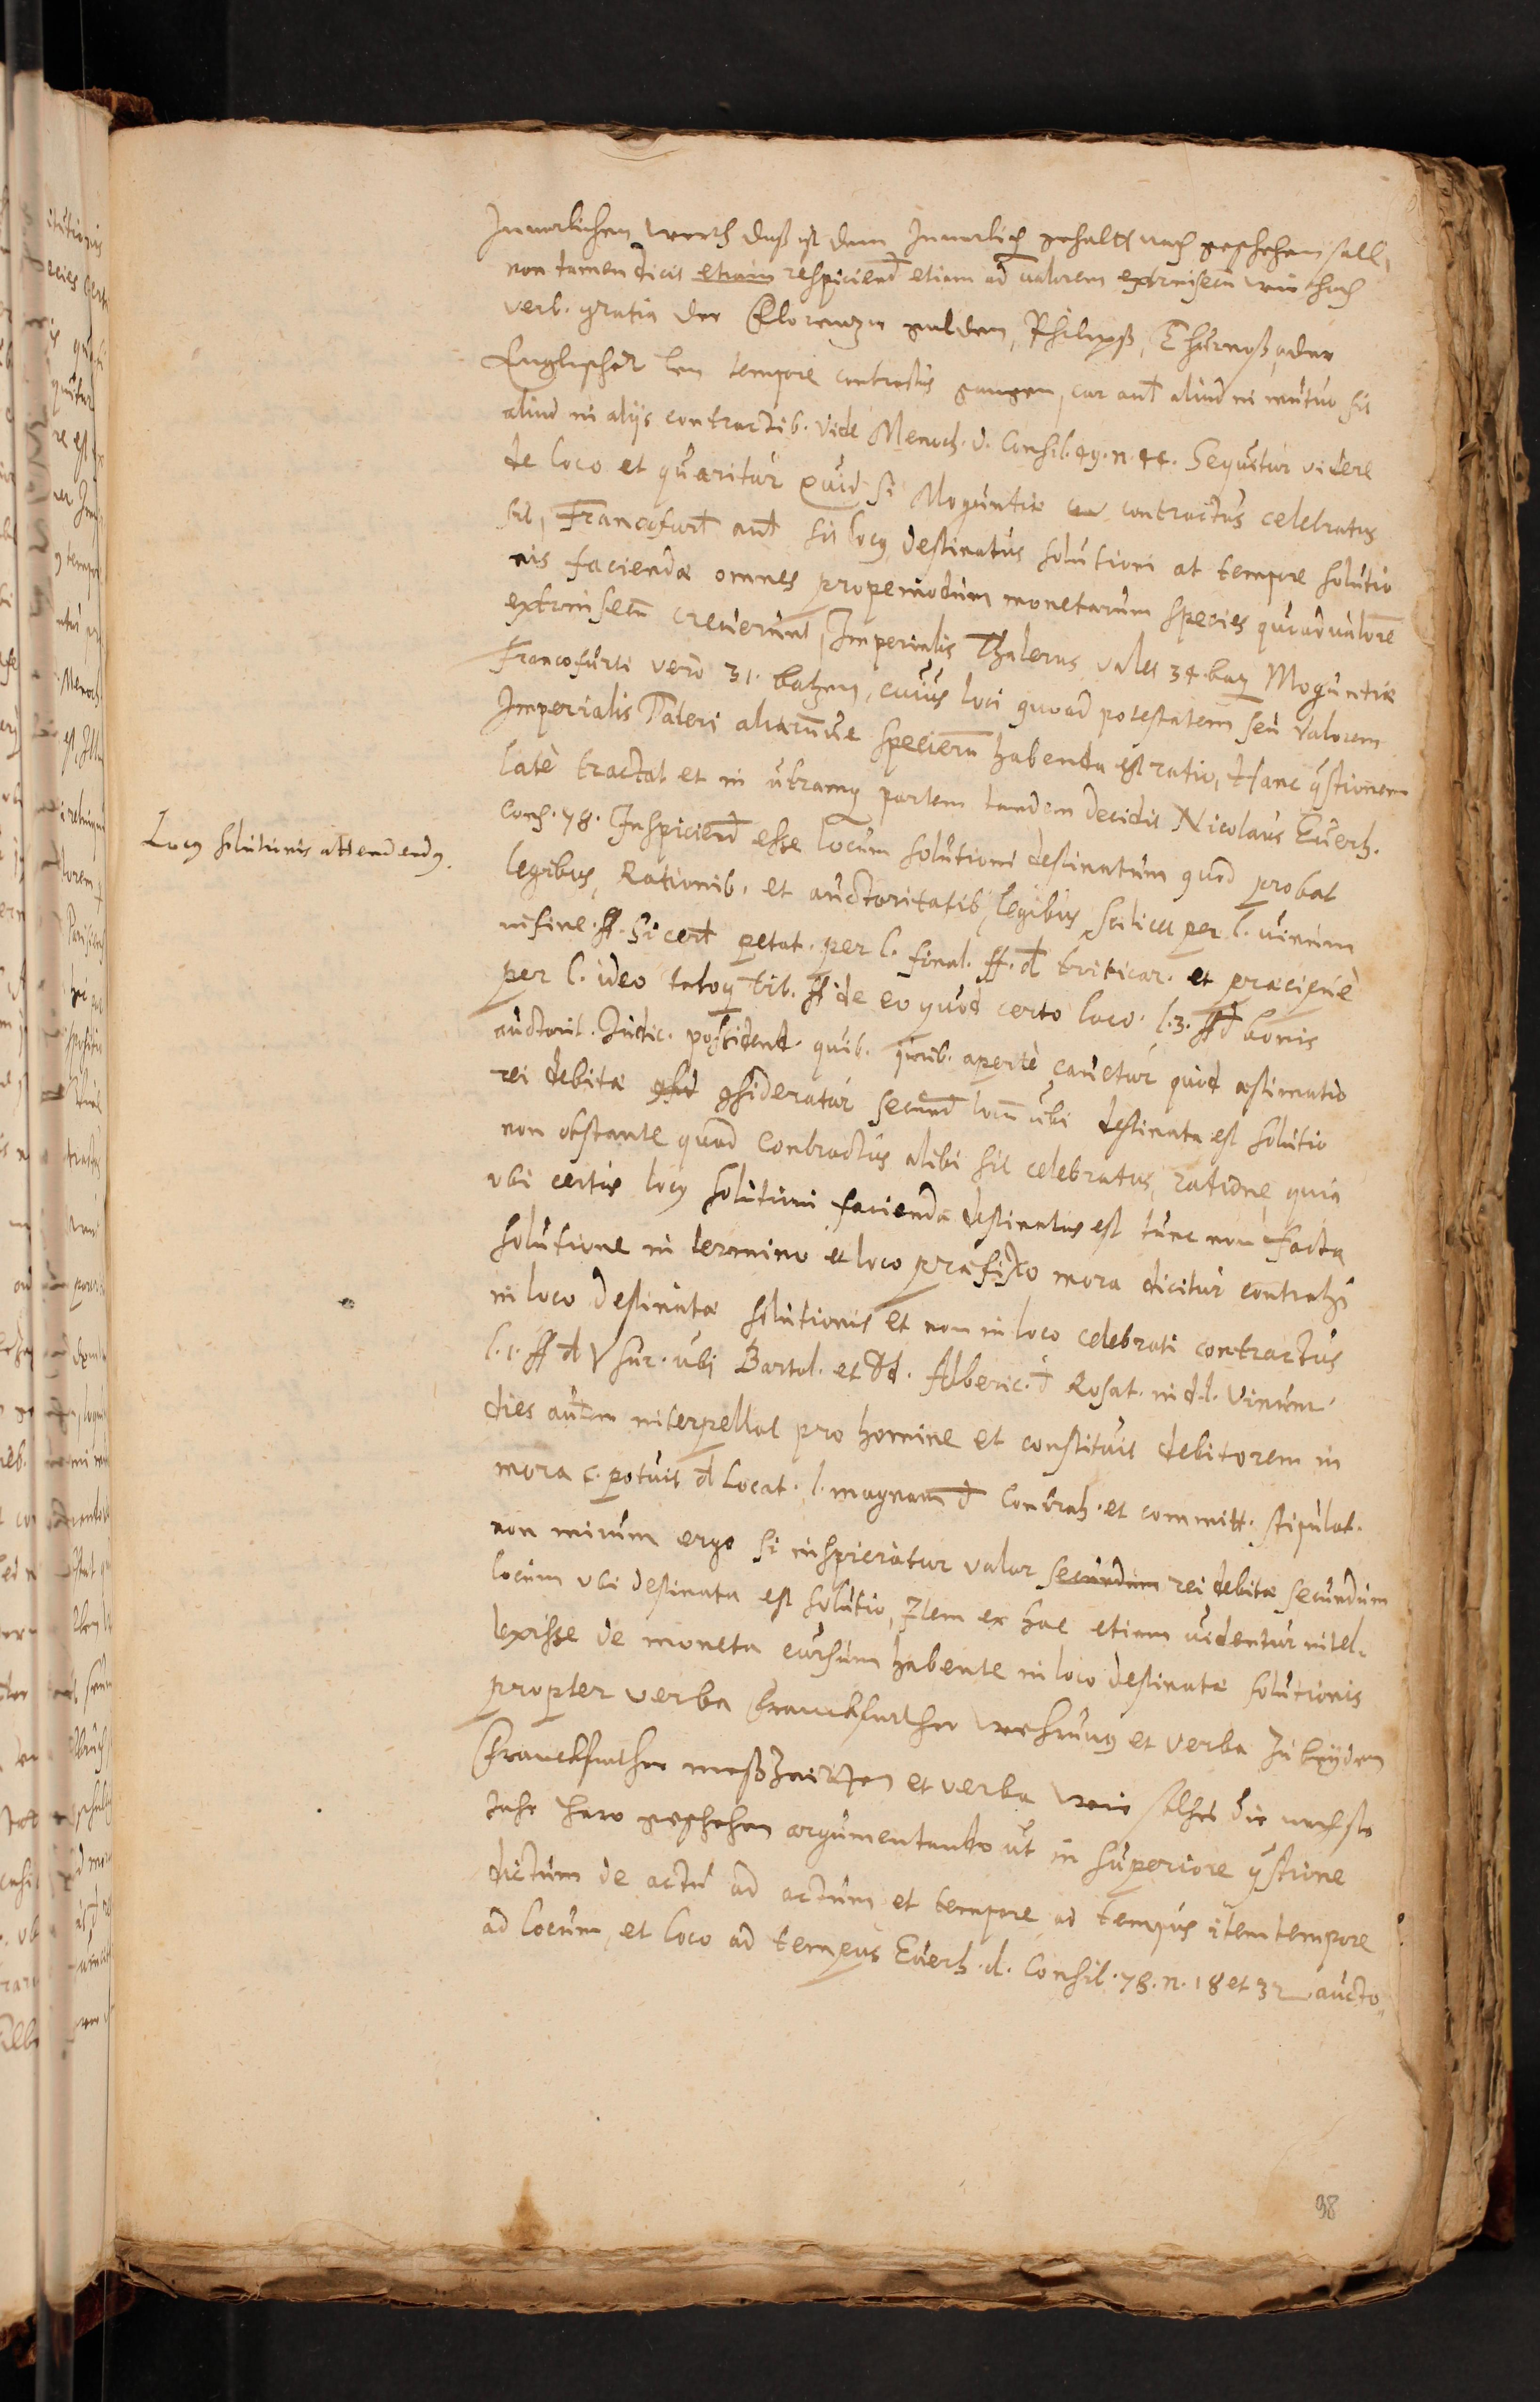 Innerlichen werth daß ist dem Innerlich gehalt nach geschehen soll,
non tamen dicit etiam respiciend etiam ad valorem extrinsecũ wie hoch
verb. gratia der Florenzer gulden, Philipß, Thurnoß, oder
Englischer tempore contractus gangen, cur aut aliud in mutuo sit
aliud in alijs contractib. vide Menoch. d. Consil. 49. n. 44. Sequitur videre
de loco et quæritur quid si Moguntiæ contractus celebratus
sit, Francofurt aut sit locꝰ destinatus solutioni at tempore solutio
nis faciendæ omnes propemodum monetarum species quoad valorẽ
extrinsecũ creuerunt, Imperialis Thalerus valet 34. baz Moguntiæ
Francofurti vero 31. batzen, cuius loci quoad potestatem seu valorem
Imperialis Taleri aliarũue specierũ habenda est ratio, Hanc qstionem
latè tractat et in utramqꝫ partem tandem decidit Nicolaus Euerh.
Cons. 78. Inspiciend esse locum solutioni destinatum quod probat
Locꝰ solutionis attendendꝰ.
legibus, Rationib. et auctoritatib, legibus scilicet per l. vinum
in fine. ff. Si cert petat. per l. final. ff. d triticar. et præcipuè
per l. ideo ff de eo quod certo loco. l. 3. ff d bonis
auctorit. Iudic. possidend. quib. iurib. apertè cauetur quod æstimatio
rei debitæ ꝯsideratur secund locũ ubi destinata est solutio
non obstante quod contractus alibi sit celebratus, ratione, quia
vbi certus locꝰ solutioni faciendæ destinatus est tunc non facta
solutione in termino et loco præfixo mora dicitur contrahi
in loco destinatæ solutionis et non in loco celebrati contractus
l. 1. ff d Vsur. ubi Bartol. et Dd. Alberic. d Rosat. in d. l. vinum.
dies autem interpellat pro homine et constituit debitorem in
mora c. potuit d Locat. l. magnam d Contrah. et committ. stipulat.
non mirum ergo si inspiciatur valor secundum rei debitæ secundum
locum vbi destinata est solutio, Item ex hac etiam videntur intel-
lexisse de moneta cursum habente in loco destinatæ solutionis
propter verba Franckfurther wehrung et verba Zu beyden
Franckfurther meßzeitten et verba wie solches die nechste
Jahr hero geschehen argumentando ut in superiore qstione
dictum de actu ad actum et tempore ad tempus item tempore
ad locum, et loco ad tempus Euerh. d. Consil. 78. n. 18 et 32 aucto„
98